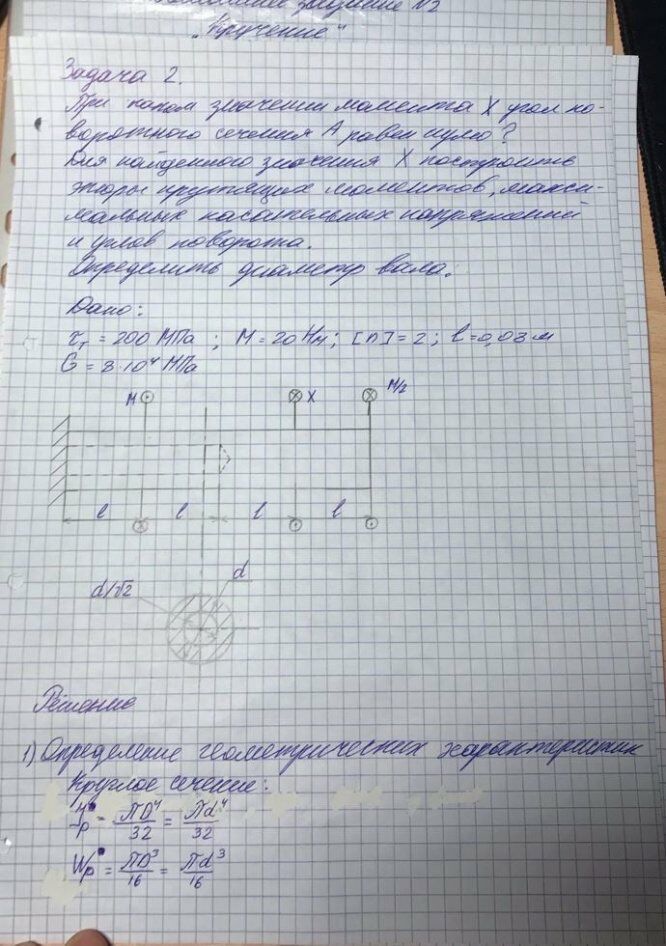 домашнее задание N2
„Кручение“
Задача 2.
При каком значении момента X угол по-
воротного сечения A равен нулю?
Для найденного значения X построить
эпюры крутящих моментов, макси-
мальных касательных напряжений
и углов поворота.
Определить диаметр вала.
Дано:
τт = 200 МПа ; M = 20 Нм ; [n] = 2 ; l = 0,03 м
G = 8·10⁴ МПа
M X M/2
l l l l
d/√2 d
Решение
1) Определение геометрических характеристик
Круглое сечение:
Jp = πD⁴/32 = πd⁴/32
Wp = πD³/16 = πd³/16